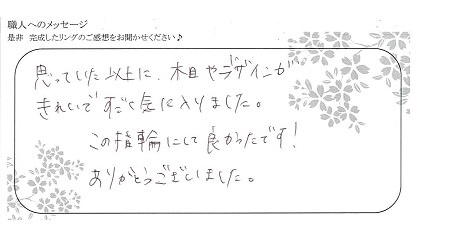 職人へのメッセージ
是非 完成したリングのご感想をお聞かせください♪
思っていた以上に、木目やデザインが
きれいですごく気に入りました。
この指輪にして良かったです!
ありがとうございました。